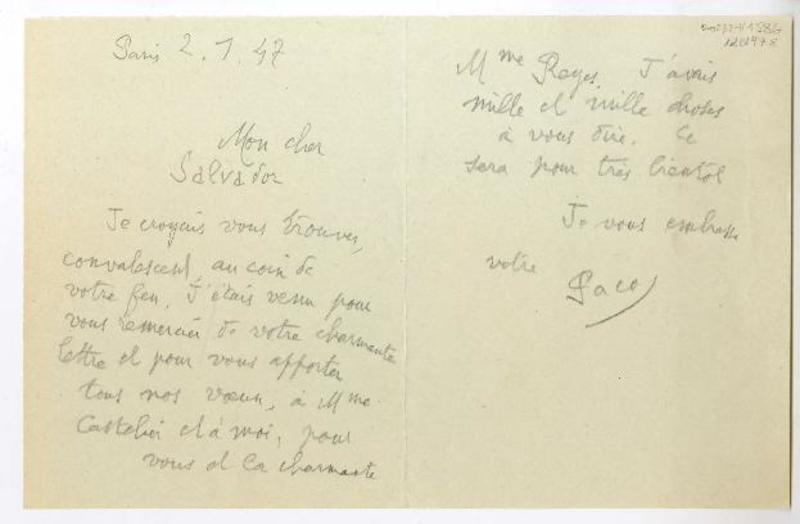 Paris 2.1.47
Mon cher
Salvador
Je croyais vous trouver,
convalescent, au coin de
votre feu. J'étais venu pour
vous remercier de votre charmante
lettre et pour vous apporter
tous nos vœux, à Mme
et à moi, pour
vous et la charmante
Mme Reyes. J'avais
mille et mille choses
à vous dire. Ce
sera pour très bientôt
Je vous embrasse
votre
Paco